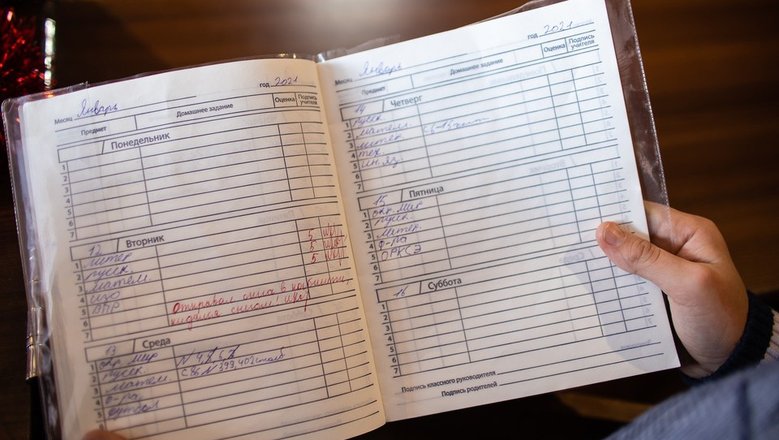 Месяц Январь год 2021
Предмет Домашнее задание Оценка Подпись учителя
Понедельник
1
2
3
4
5
6
7
12 Вторник
1 литер 5
2 русск 5
3 матем. 5
4 ИЗО
5 ППР
6 Открывал окна в кабинете,
7 кидался снегом! ИЗО
13 Среда
1 окр. Мир
2 русск
3 матем
4 ф-ра
5
6
7
Месяц Январь год 2021
Предмет Домашнее задание Оценка Подпись учителя
14 Четверг
1 русск
2 матем.
3 литер
4 тех
5 ин. яз
6
7
15 Пятница
1 окр. Мир
2 русск
3 матем.
4 ф-ра
5 ОРКСЭ
6
7
16 Суббота
1
2
3
4
5
6
7
Подпись классного руководителя
Подпись родителей